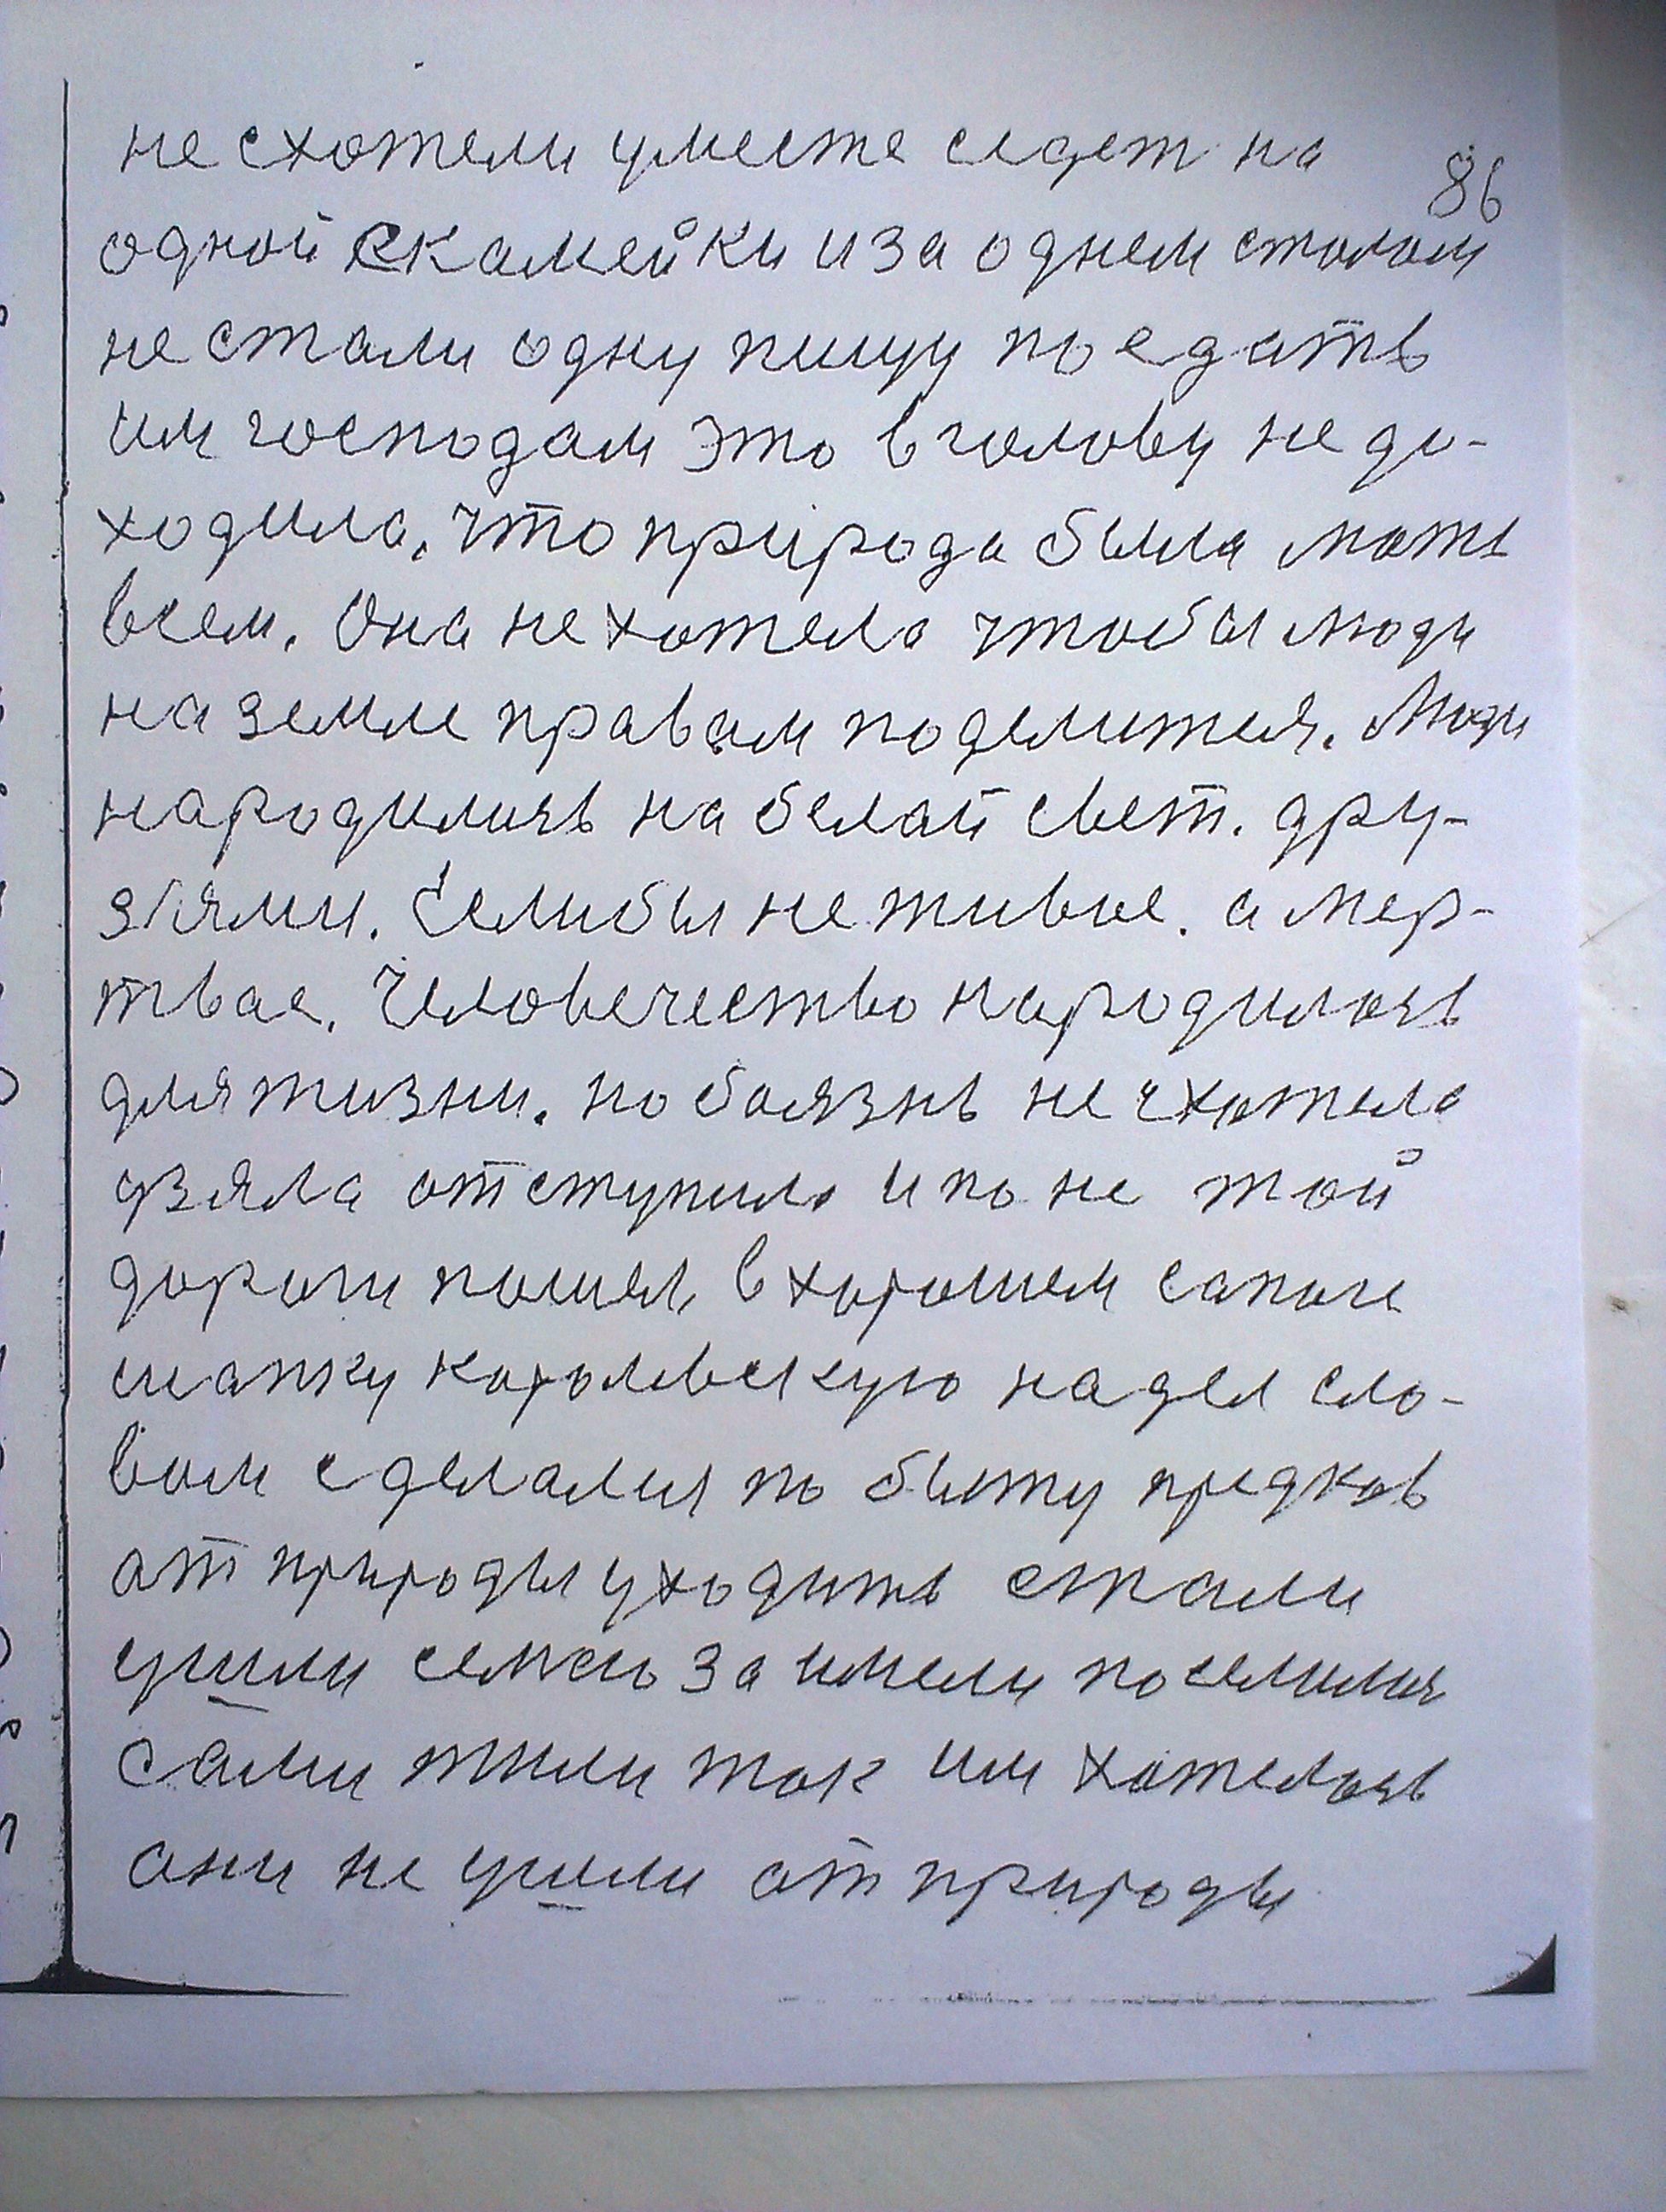 не схотели уместе седет на
86
одной скамейки и за однем столом
не стали одну пищу поедать
им господам это в голову не до-
ходила, что природа была мать
всем. Она не хотела чтобы люди
на земле правам поделится. Люди
народились на белай свет. дру-
зьями. Если бы не живое. а мер-
твае. Человечество народилось
для жизни. но боязнь не схотела
взяла отступила и по не той
дороги пошел, в хорошем сапоге
шапку королевскую надел сло-
вом сделался по быту предков
от природы уходить стали
ушли семью заимели поселился
сами жили так им хотелось
они не ушли от природы